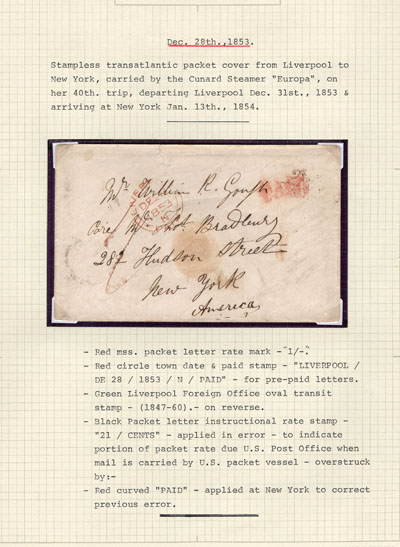 Dec. 28th.,1853.
Stampless transatlantic packet cover from Liverpool to
New York, carried by the Cunard Steamer "Europa", on
her 40th. trip, departing Liverpool Dec. 31st., 1853 &
arriving at New York Jan. 13th., 1854.
Mr. William R. Gough
Care Mr. Lot Bradbury
282 Hudson Street
New York
America
- Red mss. packet letter rate mark -"1/-".
- Red circle town date & paid stamp - "LIVERPOOL /
DE 28 / 1853 / N / PAID" - for pre-paid letters.
- Green Liverpool Foreign Office oval transit
stamp - (1847-60).- on reverse.
- Black Packet letter instructional rate stamp -
"21 / CENTS" - applied in error - to indicate
portion of packet rate due U.S. Post Office when
mail is carried by U.S. packet vessel - overstruck
by:-
- Red curved "PAID" - applied at New York to correct
previous error.